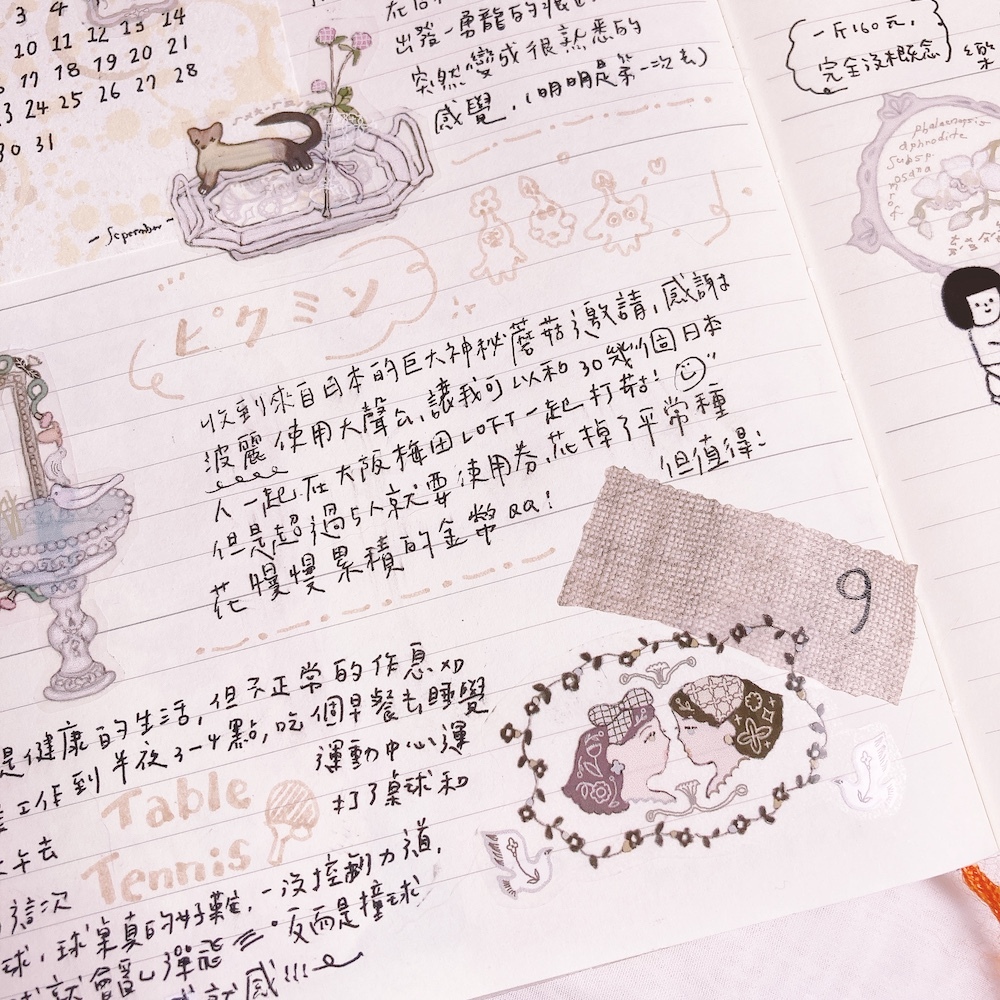 3 4
10 11 12 13 14
17 18 19 20 21
23 24 25 26 27 28
30 31
- September -
出發-勇龍的
突然變成很熟悉的
感覺,(明明是第一次去)
ピクミン
收到來自日本的巨大神秘蘑菇邀請,感謝
波麗使用大聲公,讓我可以和30幾個日本
人一起在大阪梅田LOFT一起打菇!
但是超過5人就要使用券,花掉了平常種
花慢慢累積的金幣QQ! 但值得!
9
是健康的生活,但不正常的作息XD
工作到半夜3-4點,吃個早餐去睡覺
運動中心運
Table
打了桌球和
Tennis
午去
這次
球,球桌真的好難,一沒控制力道,
就會亂彈飛 反而是撞球
就感!!!
一斤160元,
完全沒概念
phalaenopsis
aphrodite
subsp.